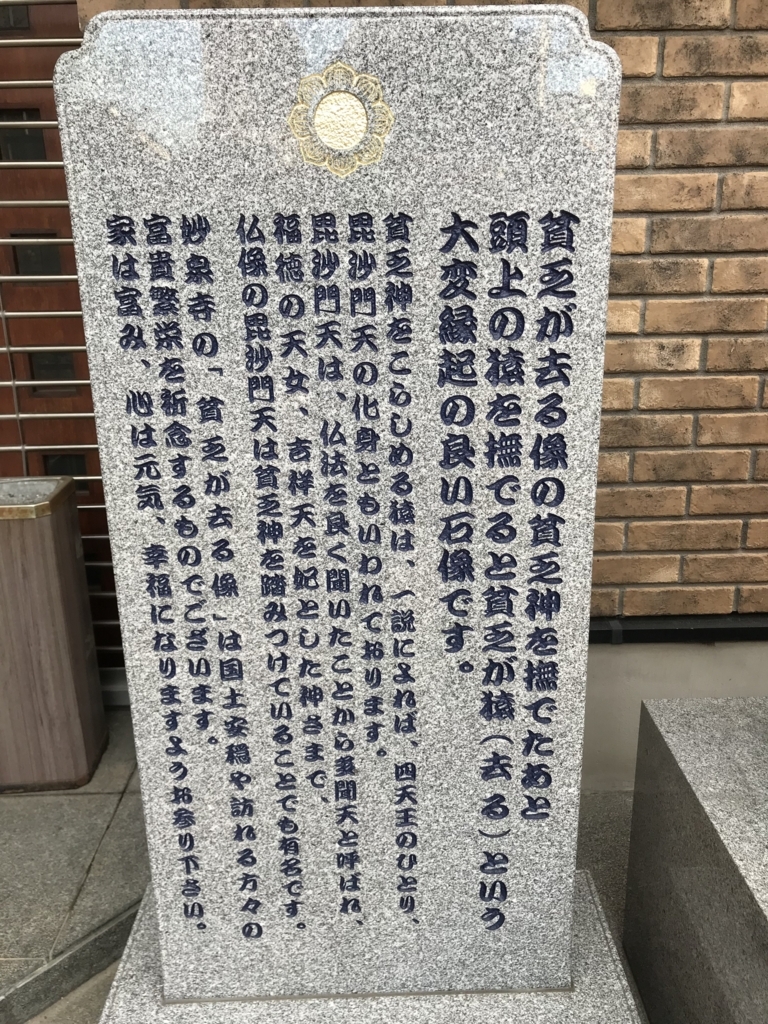 貧乏が去る像の貧乏神を撫でたあと
頭上の猿を撫でると貧乏が猿（去る）という
大変縁起の良い石像です。
貧乏神をこらしめる猿は、一説によれば、四天王のひとり、
毘沙門天の化身ともいわれております。
毘沙門天は、仏法を良く聞いたことから多聞天と呼ばれ、
福徳の天女、吉祥天を妃とした神さまで、
仏像の毘沙門天は貧乏神を踏みつけていることでも有名です。
妙泉寺の「貧乏が去る像」は国土安穏や訪れる方々の
富貴繁栄を祈念するものでございます。
家は富み、心は元気、幸福になりますようお参り下さい。